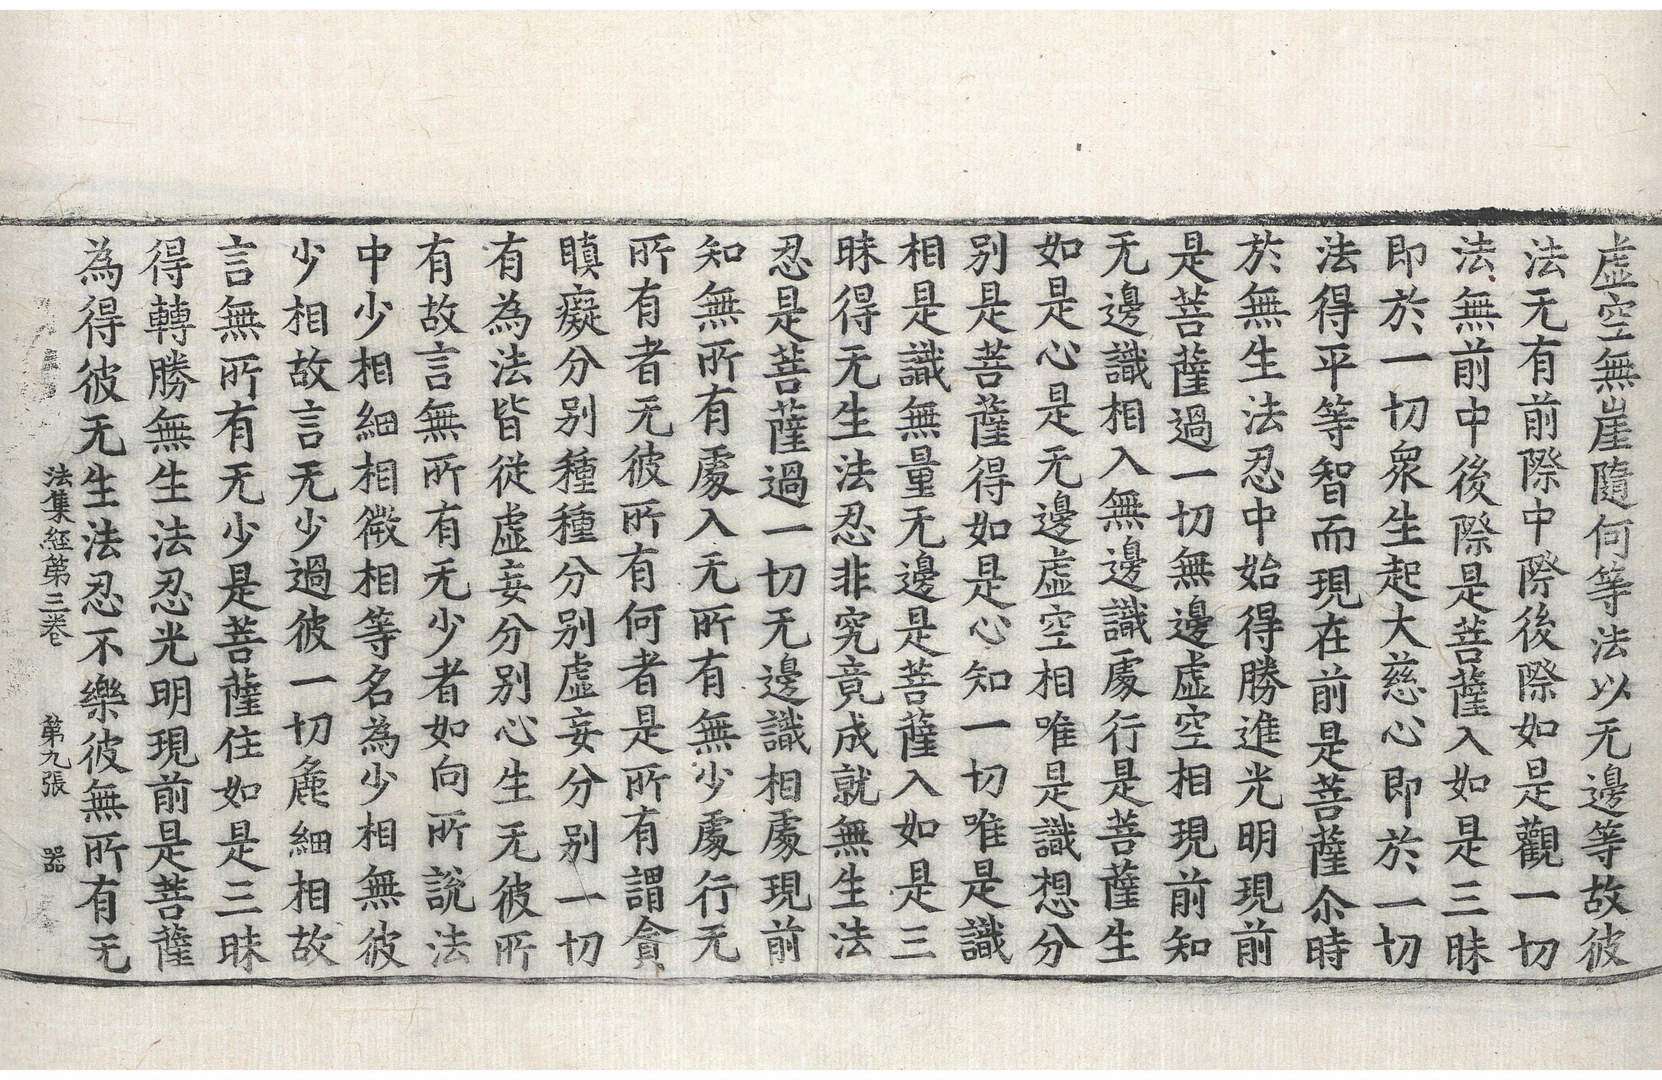 虛空無崖隨何等法以无邊等故彼
法无有前際中際後際如是觀一切
法無前中後際是菩薩入如是三昧
即於一切衆生起大慈心即於一切
法得平等智而現在前是菩薩尒時
於無生法忍中始得勝進光明現前
是菩薩過一切無邊虛空相現前知
无邊識相入無邊識處行是菩薩生
如是心是无邊虛空相唯是識想分
別是菩薩得如是心知一切唯是識
相是識無量无邊是菩薩入如是三
昧得无生法忍非究竟成就無生法
忍是菩薩過一切无邊識相處現前
知無所有處入无所有無少處行无
所有者无彼所有何者是所有謂貪
瞋癡分別種種分別虛妄分別一切
有為法皆從虛妄分別心生无彼所
有故言無所有无少者如向所說法
中少相細相微相等名為少相無彼
少相故言无少過彼一切麁細相故
言無所有无少是菩薩住如是三昧
得轉勝無生法忍光明現前是菩薩
為得彼无生法忍不樂彼無所有无
法集經第三卷 第九張 器